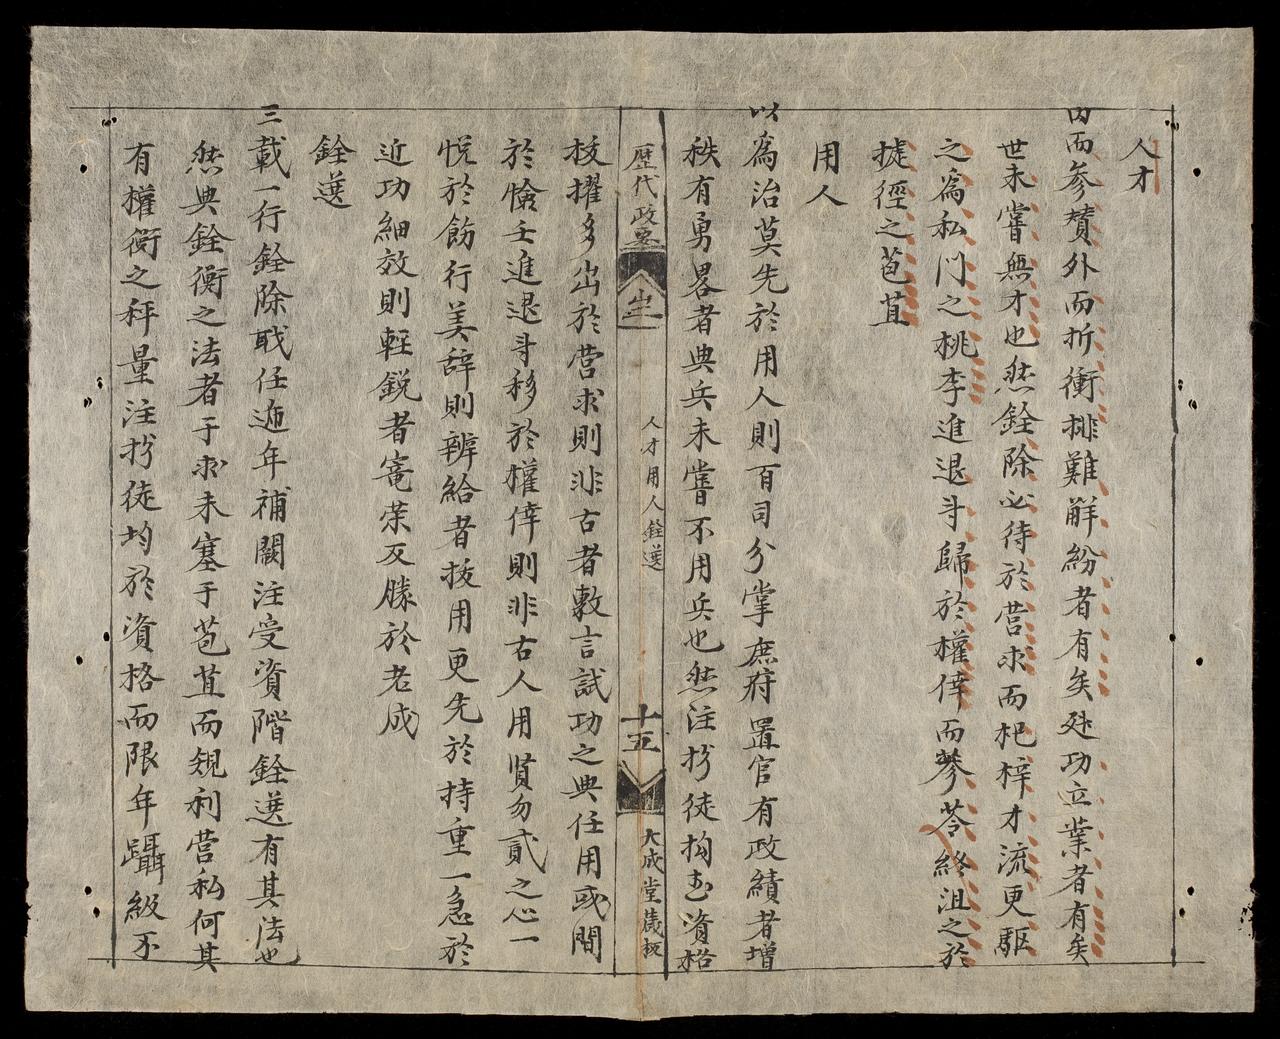 人才
內而參賛外而折衝排難解紛者有矣廷功立業者有矣
世未嘗無才也然銓除必待於营求而杞梓才流更驅
之爲私门之桃李進退斗歸於權倖而蔘苓終沮之於
㨗徑之苞苴
用人
以爲治莫先於用人則百司分掌庶府置官有政績者增
秩有勇畧者典兵未嘗不用兵也然注抄徒拘扵資格
歷代政要
人才用人銓選
十五
大成堂蔵板
校擢多出於营求則非古者敷言試功之典任用或間
於憸壬進退斗移於權倖則非右人用贤勿貳之心一
悦於飭行美辞則辨給者拔用更先於持重一急於
近功細效則輕鋭者寵荣反勝於老成
銓选
三載一行銓除戢任迊年補闕注受資階銓选有其法也
然典銓衡之法者于求未塞于苞苴而䂓利营私何其
有權衡之秤量注抄徒均於資格而限年躡級不